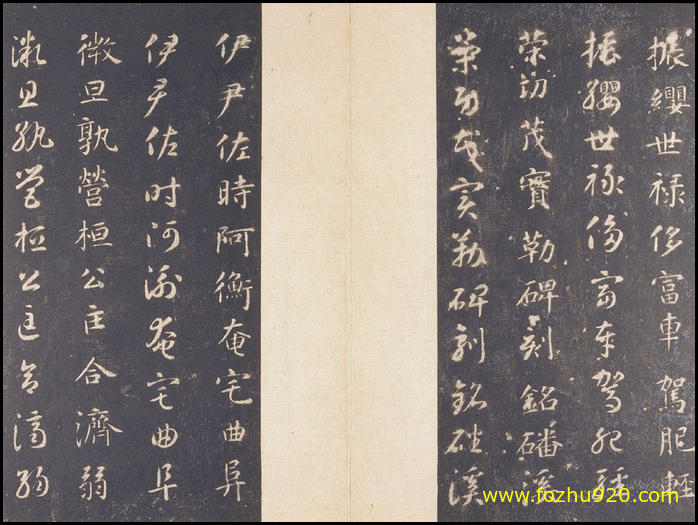 振纓世祿侈富車駕肥輕
振纓世祿侈富車駕肥輕
策功茂實勒碑刻銘磻溪
策功茂實勒碑刻銘磻溪
伊尹佐時阿衡奄宅曲阜
伊尹佐時阿衡奄宅曲阜
微旦孰營桓公匡合濟弱
微旦孰營桓公匡合濟弱
www.fozhu920.com